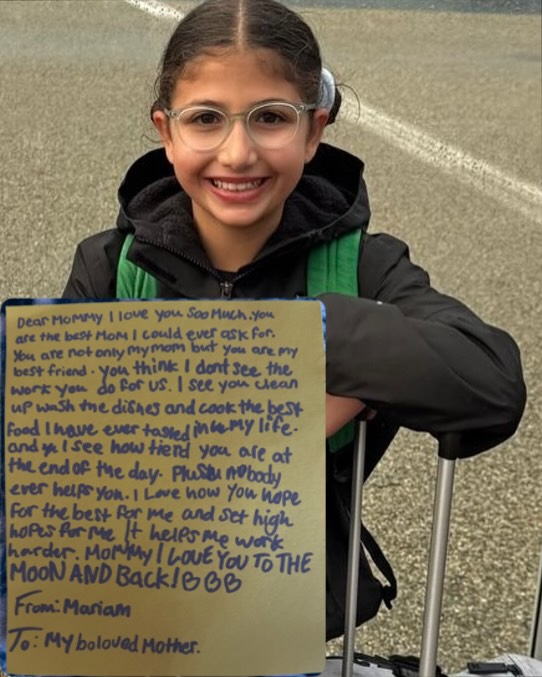 Dear Mommy I love you soo much. you
are the best Mom I could ever ask for.
You are not only my mom but you are my
best friend. you think I dont see the
work you do for us. I see you clean
up wash the dishes and cook the best
food I have ever tasted in my life.
and I see how tierd you are at
the end of the day. Plus nobody
ever helps you. I Love how you hope
for the best for me and set high
hopes for me It helps me work
harder. Mommy I LOVE YOU TO THE
MOON AND Back!
From: Mariam
To: My beloved Mother.